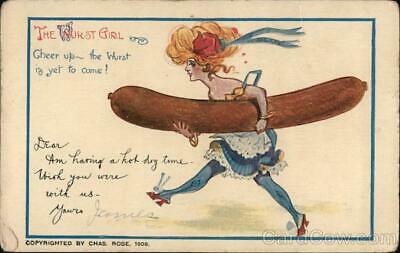 THE WURST GIRL
Cheer up - the Wurst
is yet to come!
Dear
Am having a hot dog time -
Wish you were
with us -
Yours James
COPYRIGHTED BY CHAS. ROSE, 1908.
CardCow.com